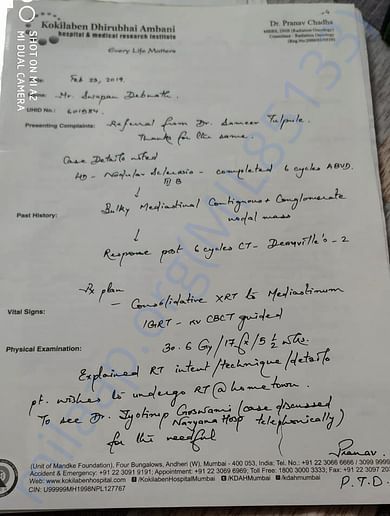 Kokilaben Dhirubhai Ambani
hospital & medical research institute
Every Life Matters
Dr. Pranav Chadha
MBBS, DNB (Radiation Oncology)
Consultant - Radiation Oncology
SHOT ON MI A2
MI DUAL CAMERA
Feb 23, 2019.
Mr. Swapan Debnath.
UHID No.:
Presenting Complaints: Referral from Dr. Sameer Tulpule.
Thanks for the same.
Case Details noted
HD - Nodular Sclerosis - completed 6 cycles ABVD.
III B
↓
Past History:
Bulky Mediastinal Contiguous + Conglomerate
nodal mass
↓
Response post 6 cycles CT - Deauville's - 2
Rx plan
- Consolidative XRT to Mediastinum
Vital Signs:
IGRT - KV CBCT guided
30.6 Gy / 17 fx / 5 1/2 wks.
Physical Examination:
Explained RT intent/technique/details
pt. wishes to undergo RT @ hometown.
To see Dr. Jyotirup Goswami (case discussed
Narayana Hosp telephonically)
for the needful
Pranav
P.T.O.
(Unit of Mandke Foundation), Four Bungalows, Andheri (W), Mumbai - 400 053, India; Tel. No.: +91 22 3066 6666 / 3099 9999
Accident & Emergency: +91 22 3091 9191; Appointment: +91 22 3069 6969; Toll Free: 1800 3000 3333; Fax: +91 22 3097 20
Web: www.kokilabenhospital.com /KokilabenHospitalMumbai /KDAHMumbai /kdahmumbai
CIN: U99999MH1998NPL127767
milaap.org(MIL85133)